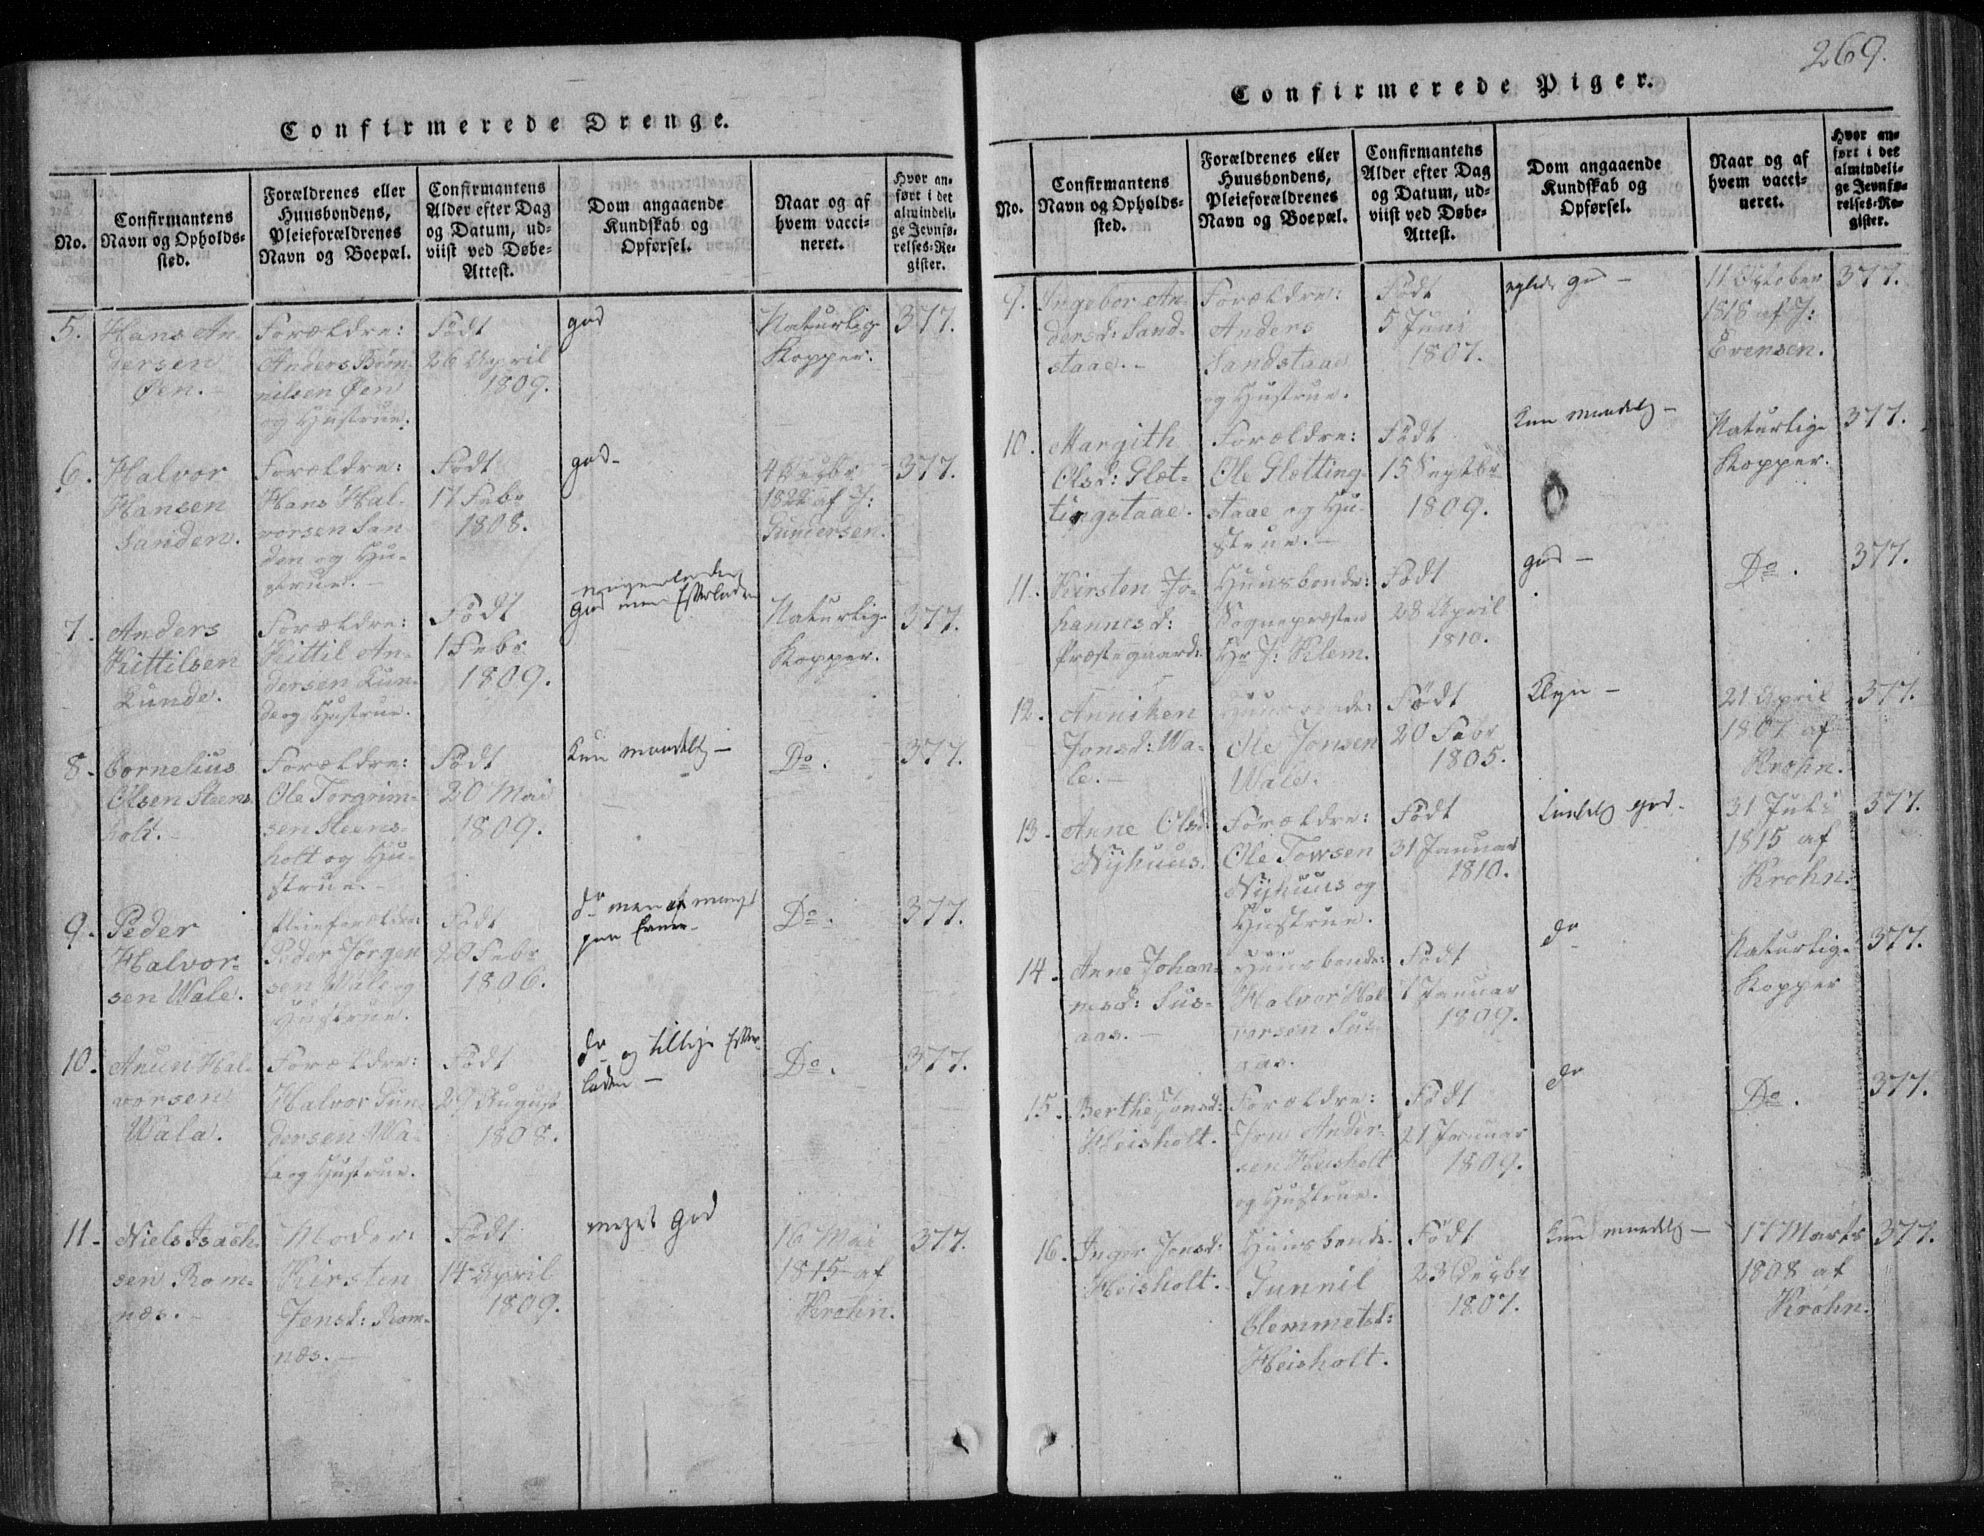 Confirmerede Drenge.
No.
Confirmantens
Navn og Opholds-
sted.
Forældrenes eller
Huusbondens,
Pleieforældrenes
Navn og Boepæl.
Confirmantens
Alder efter Dag
og Datum, ud-
viist ved Døbe-
Attest.
Dom angaaende
Kundskab og
Opførsel.
Naar og af
hvem vacci-
neret.
Hvor an-
ført i det
almindeli-
ge Jevnfø-
relses-Re-
gister.
5.
Hans An-
dersen
Øen.
Forældre:
Anders
nilsen Øen
og Hustrue.
Født
26 April
1809.
god
Naturlige
Kopper.
377.
6.
Halvor
Hansen
Sanden.
Forældre:
Hans Hal-
vorsen San-
den og Hu-
strue.-
Født
17 Febr
1808.
god-
4
1822 af J:
Gundersen.
377.
7.
Anders
Kittilsen
Lunde.
Forældre:
Kittil An-
dersen Lun-
de og Hustrue.
Født
1 Febr
1809.
nogenlunde
god men
Naturlige
Kopper.
377.
8.
Cornelius
Olsen Steens-
holt.-
Forældre:
Ole Torgrim-
sen Steens-
holt og Hu-
strue.-
Født
20 Mai
1809.
Kun maadelig-
Do.
377.
9.
Peder
Halvor-
sen Wale.
Pleieforældre:
Peder Jørgen-
sen Wale og
Hustrue.
Født
20 Febr
1806.
do men af mangel
paa Evne-
Do.
377.
10.
Anun Hal-
vorsen
Wala.
Forældre:
Halvor Gun-
dersen Wa-
la og Hustrue.
Født
29 August
1808.
do og tillige Efter-
laden-
Do.
377.
11.
Niels Isach-
sen Rom-
næs.-
Moder:
Kirsten
Jensd: Rom-
næs.-
Født
14 April
1809.
meget god
16 Mai
1815 af
Krohn.
377.
269.
Confirmerede Piger.
No.
Confirmantens
Navn og Opholds-
sted.
Forældrenes eller
Huusbondens,
Pleieforældrenes
Navn og Boepæl.
Confirmantens
Alder efter Dag
og Datum, ud-
viist ved Døbe-
Attest.
Dom angaaende
Kundskab og
Opførsel.
Naar og af
hvem vacci-
neret.
Hvor an-
ført i det
almindeli-
ge Jevnfø-
relses-Re-
gister.
9.
Ingebor An-
dersd: Sand-
staae.-
Forældre:
Anders
Sandstaae
og Hustrue.
Født
5 Juni
1807.
11 October
1818 af J:
Evensen.
377.
10.
Margith
Olsd: Slet-
tingstaae.
Forældre:
Ole Sletting-
staae og Hu-
strue.-
Født
15 Septbr
1809.
Kun maadelig-
Naturlige
Kopper.
377.
11.
Kirsten Jo-
hannesd:
Præstegaard:
Huusbonde:
Sognepræsten
Hr J: Klem.
Født
28 April
1810.
god-
Do.
377.
12.
Anniken
Jonsd: Wa-
le.-
Huusbonde:
Ole Jonsen
Wale.
Født
20 Febr
1805.
21 April
1807 af
Krohn.
377.
13.
Anne Olsd:
Nyhuus.
Forældre:
Ole Towsen
Nyhuus og
Hustrue.
Født
31 Januar
1810.
temmelig god-
31 Juli
1815 af
Krohn.
377.
14.
Anne Johan-
nesd: Sus-
aas.-
Huusbonde:
Halvor Hal-
vorsen Sus-
aas.
Født
1 Januar
1809.
do
Naturlige
Kopper
377.
15.
Berthe Jonsd:
Heisholt.
Forældre:
Jon Ander-
sen Heisholt
og Hustrue.
Født
21 Januar
1809.
do
Do.
377.
16.
Inger Jonsd:
Heisholt.
Huusbonde:
Gunnil
Clemmetsd:
Heisholt.
Født
23 Decbr
1807.
Kun maadelig-
17 Marts
1808 af
Krohn.
377.